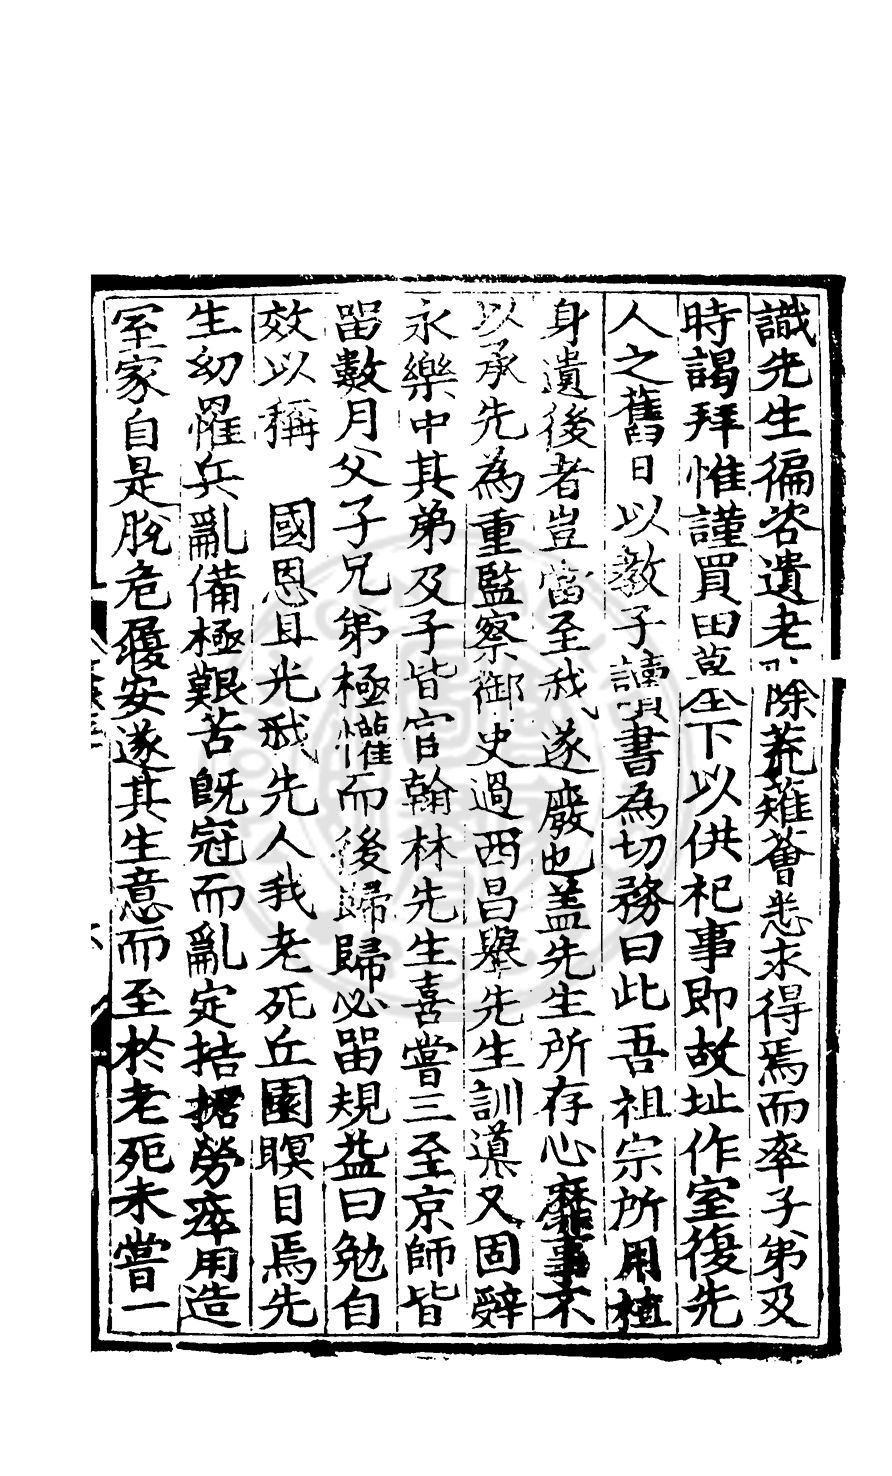 識先生徧咨遺老除荒薙薈悉求得焉而率子弟及
時謁拜惟謹買田墓下以供祀事即故址作室復先
人之舊日以教子讀書為切務曰此吾祖宗所用植
身遺後者豈當至我遂廢也盖先生所存心靡事不
以承先為重監察御史過西昌舉先生訓導又固辭
永樂中其弟及子皆官翰林先生喜嘗三至京師皆
留數月父子兄弟極懽而後歸歸必留規益曰勉自
效以稱 國恩且光我先人我老死丘園瞑目焉先
生幼罹兵亂備極艱苦既冠而亂定拮据勞瘁用造
室家自是脫危履安遂其生意而至於老死未嘗一